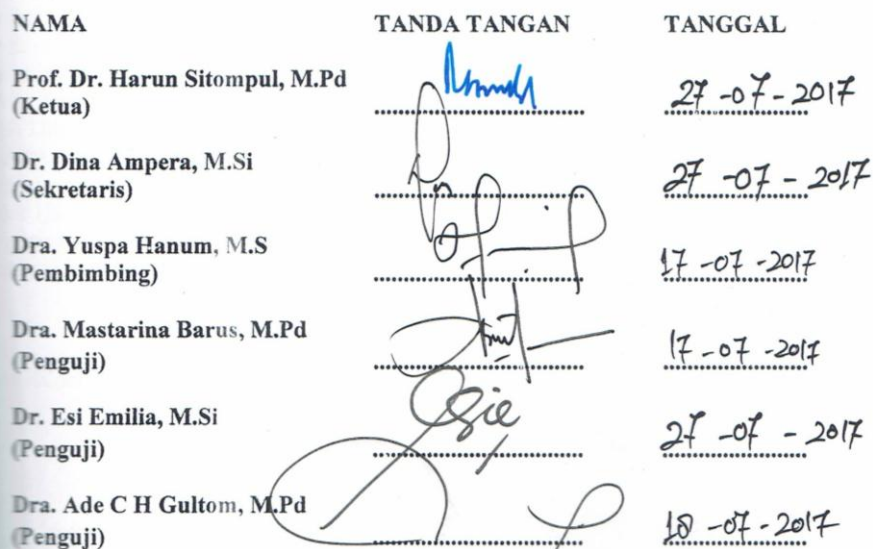 NAMA TANDA TANGAN TANGGAL
Prof. Dr. Harun Sitompul, M.Pd
(Ketua) 27 -07 - 2017
Dr. Dina Ampera, M.Si
(Sekretaris) 27 -07 - 2017
Dra. Yuspa Hanum, M.S
(Pembimbing) 17 -07 -2017
Dra. Mastarina Barus, M.Pd
(Penguji) 17 -07 -2017
Dr. Esi Emilia, M.Si
(Penguji) 27 -07 - 2017
Dra. Ade C H Gultom, M.Pd
(Penguji) 18 -07 - 2017